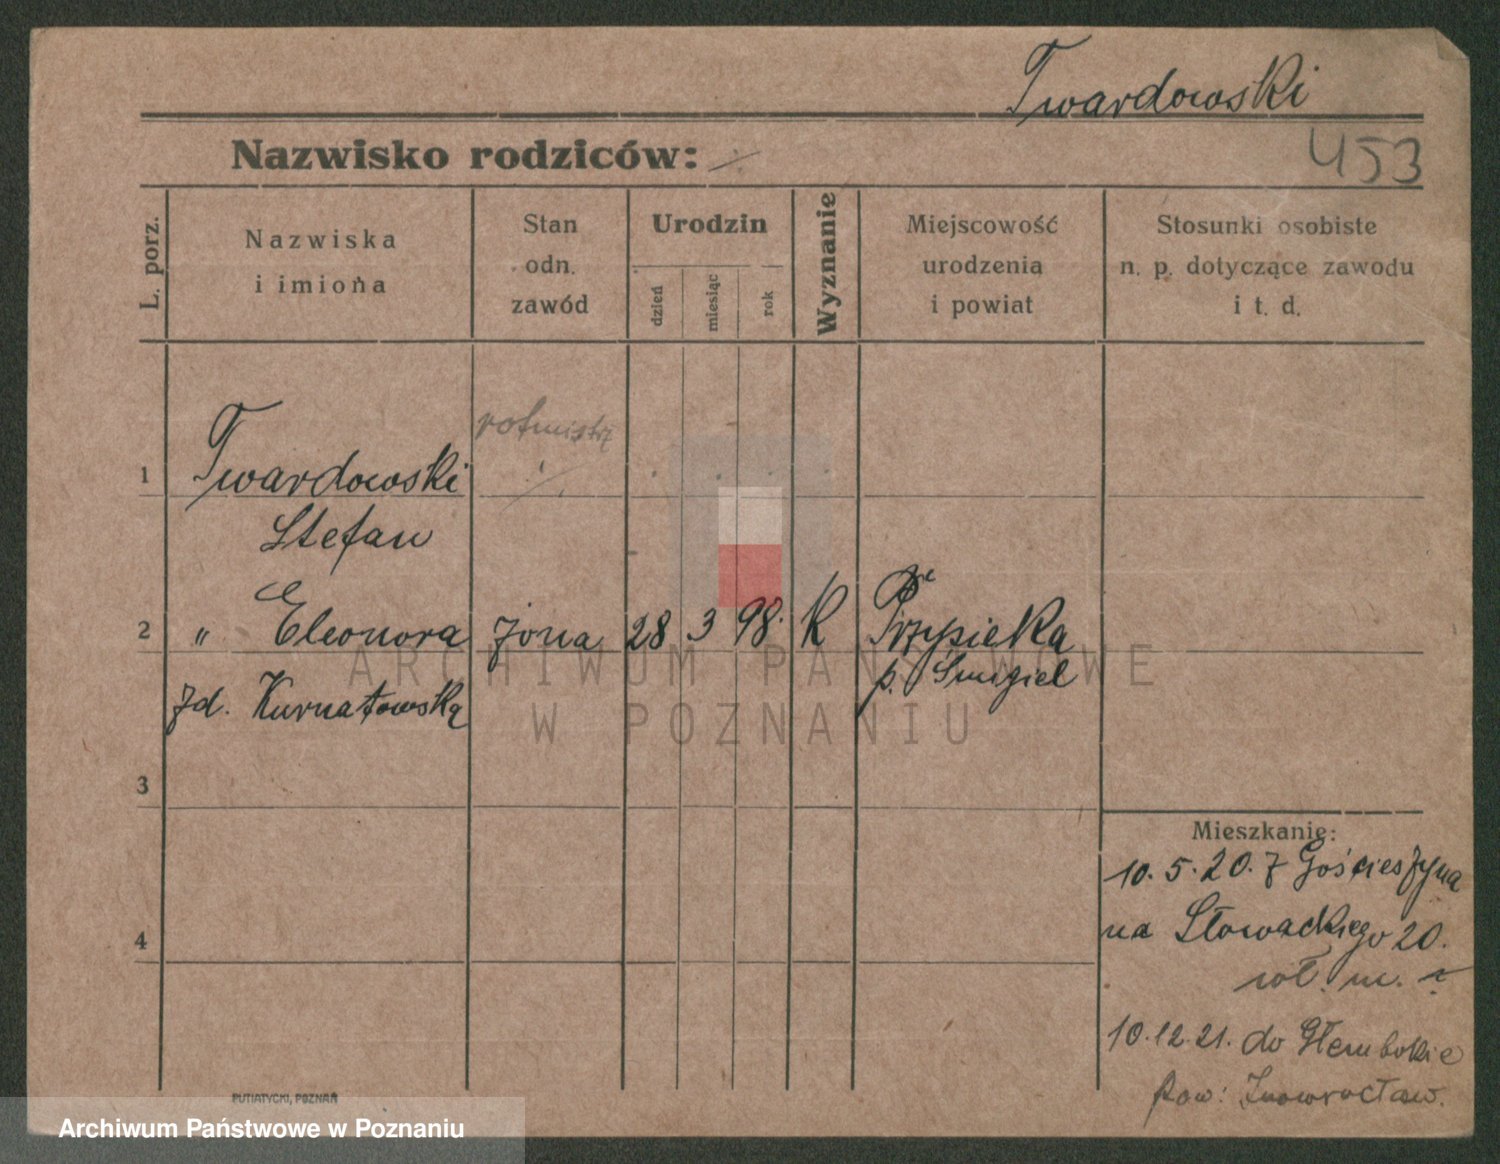 Twardowski
453
Nazwisko rodziców:
L. porz.
Nazwiska
i imiona
Stan
odn.
zawód
Urodzin
dzień
miesiąc
rok
Wyznanie
Miejscowość
urodzenia
i powiat
Stosunki osobiste
n. p. dotyczące zawodu
i t. d.
rotmistrz
1 Twardowski
Stefan
2 " Eleonora żona 28 3 98. K Przysieka
żd. Kurnatowską p. Smigiel
3
4
Mieszkanie:
10.5.20. z Gościeszyna
na Słowackiego 20.
10.12.21. do Głembokie
Pow: Inowrocław.
PUTIATYCKI, POZNAŃ
ARCHIWUM PAŃSTWOWE
W POZNANIU
Archiwum Państwowe w Poznaniu